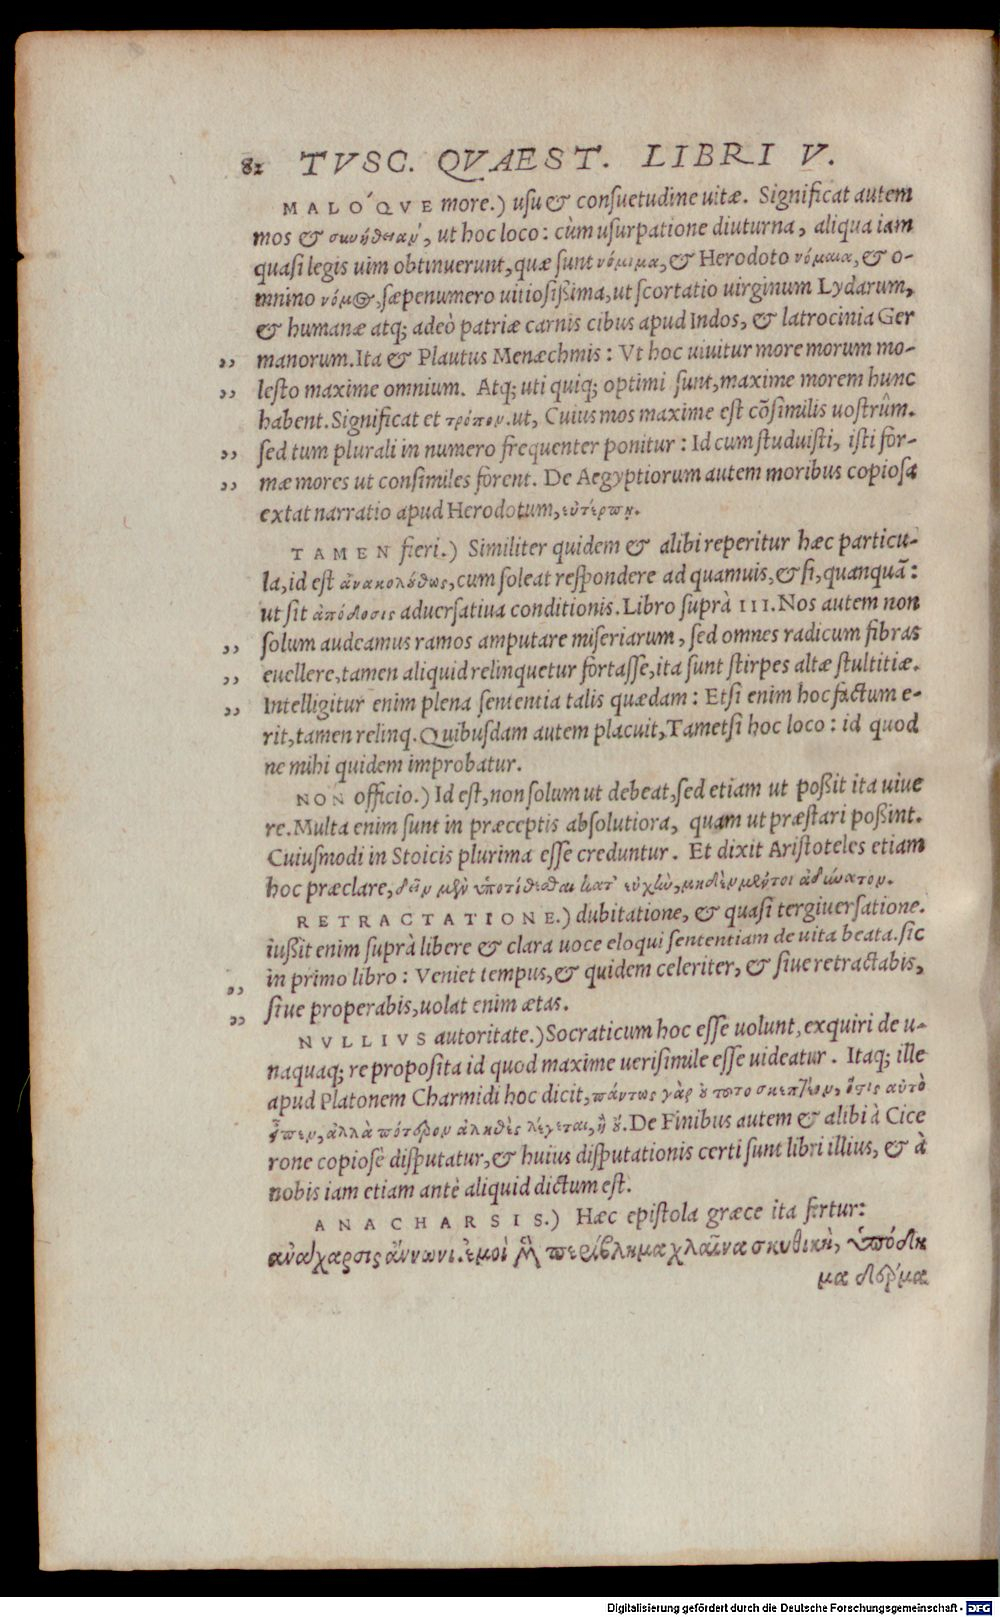 82 TVSC. QVAEST. LIBRI V.
MALO'QVE more.) usu & consuetudine uitæ. Significat autem
mos & συνήθειαν, ut hoc loco: cùm usurpatione diuturna, aliqua iam
quasi legis uim obtinuerunt, quæ sunt νόμιμα, & Herodoto νόμαια, & o-
mnino νόμος, sæpenumero uitiosißima, ut scortatio uirginum Lydarum,
& humanæ atq; adeò patriæ carnis cibus apud Indos, & latrocinia Ger
,, manorum. Ita & Plautus Menæchmis: Vt hoc uiuitur more morum mo-
,, lesto maxime omnium. Atq; uti quiq; optimi sunt, maxime morem hunc
habent. Significat et τρόπον. ut, Cuius mos maxime est cõsimilis uostrûm.
,, sed tum plurali in numero frequenter ponitur: Id cum studuisti, isti for-
,, mæ mores ut consimiles forent. De Aegyptiorum autem moribus copiosa
extat narratio apud Herodotum, εὐτέρπῃ.
TAMEN fieri.) Similiter quidem & alibi reperitur hæc particu-
la, id est ἀνακολούθως, cum soleat respondere ad quamuis, & si, quanquã:
ut sit ἀπόδοσις aduersatiua conditionis. Libro suprà III. Nos autem non
,, solum audeamus ramos amputare miseriarum, sed omnes radicum fibras
,, euellere, tamen aliquid relinquetur fortasse, ita sunt stirpes altæ stultitiæ.
,, Intelligitur enim plena sententia talis quædam: Etsi enim hoc factum e-
rit, tamen relinq. Quibusdam autem placuit, Tametsi hoc loco: id quod
ne mihi quidem improbatur.
NON officio.) Id est, non solum ut debeat, sed etiam ut poßit ita uiue
re. Multa enim sunt in præceptis absolutiora, quam ut præstari poßint.
Cuiusmodi in Stoicis plurima esse creduntur. Et dixit Aristoteles etiam
hoc præclare, δεῖν μὲν ὑποτίθεσθαι κατ' εὐχὴν, μηδὲν μέντοι ἀδύνατον.
RETRACTATIONE.) dubitatione, & quasi tergiuersatione.
iußit enim suprà libere & clara uoce eloqui sententiam de uita beata. sic
,, in primo libro: Veniet tempus, & quidem celeriter, & siue retractabis,
,, siue properabis, uolat enim ætas.
NVLLIVS autoritate.) Socraticum hoc esse uolunt, exquiri de u-
naquaq; re proposita id quod maxime uerisimile esse uideatur. Itaq; ille
apud Platonem Charmidi hoc dicit, πάντως γὰρ οὐ τοῦτο σκεπτέον, ὅστις αὐτὸ
εἶπεν, ἀλλὰ πότερον ἀληθὲς λέγεται, ἢ οὔ. De Finibus autem & alibi à Cice
rone copiosè disputatur, & huius disputationis certi sunt libri illius, & à
nobis iam etiam antè aliquid dictum est.
ANACHARSIS.) Hæc epistola græce ita fertur:
ανάχαρσις ἄννωνι. ἐμοὶ μὲν περίβλημα χλαῖνα σκυθικὴ, ὑπόδη
μα δέρμα
Digitalisierung gefördert durch die Deutsche Forschungsgemeinschaft - DFG